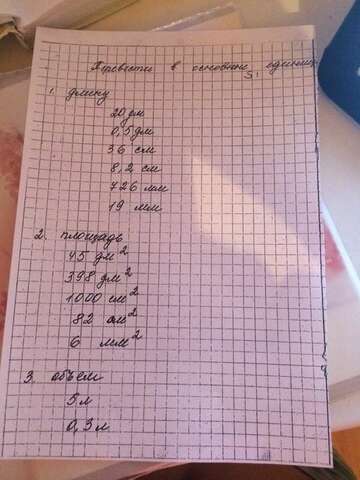 Перевести в основные единицы
SI
1. длину
20 дм
0,5 дм
36 см
8,2 см
726 мм
19 мм
2. площадь
45 дм²
398 дм²
1000 см²
82 см²
6 мм²
3. объём
5 л
0,3 л